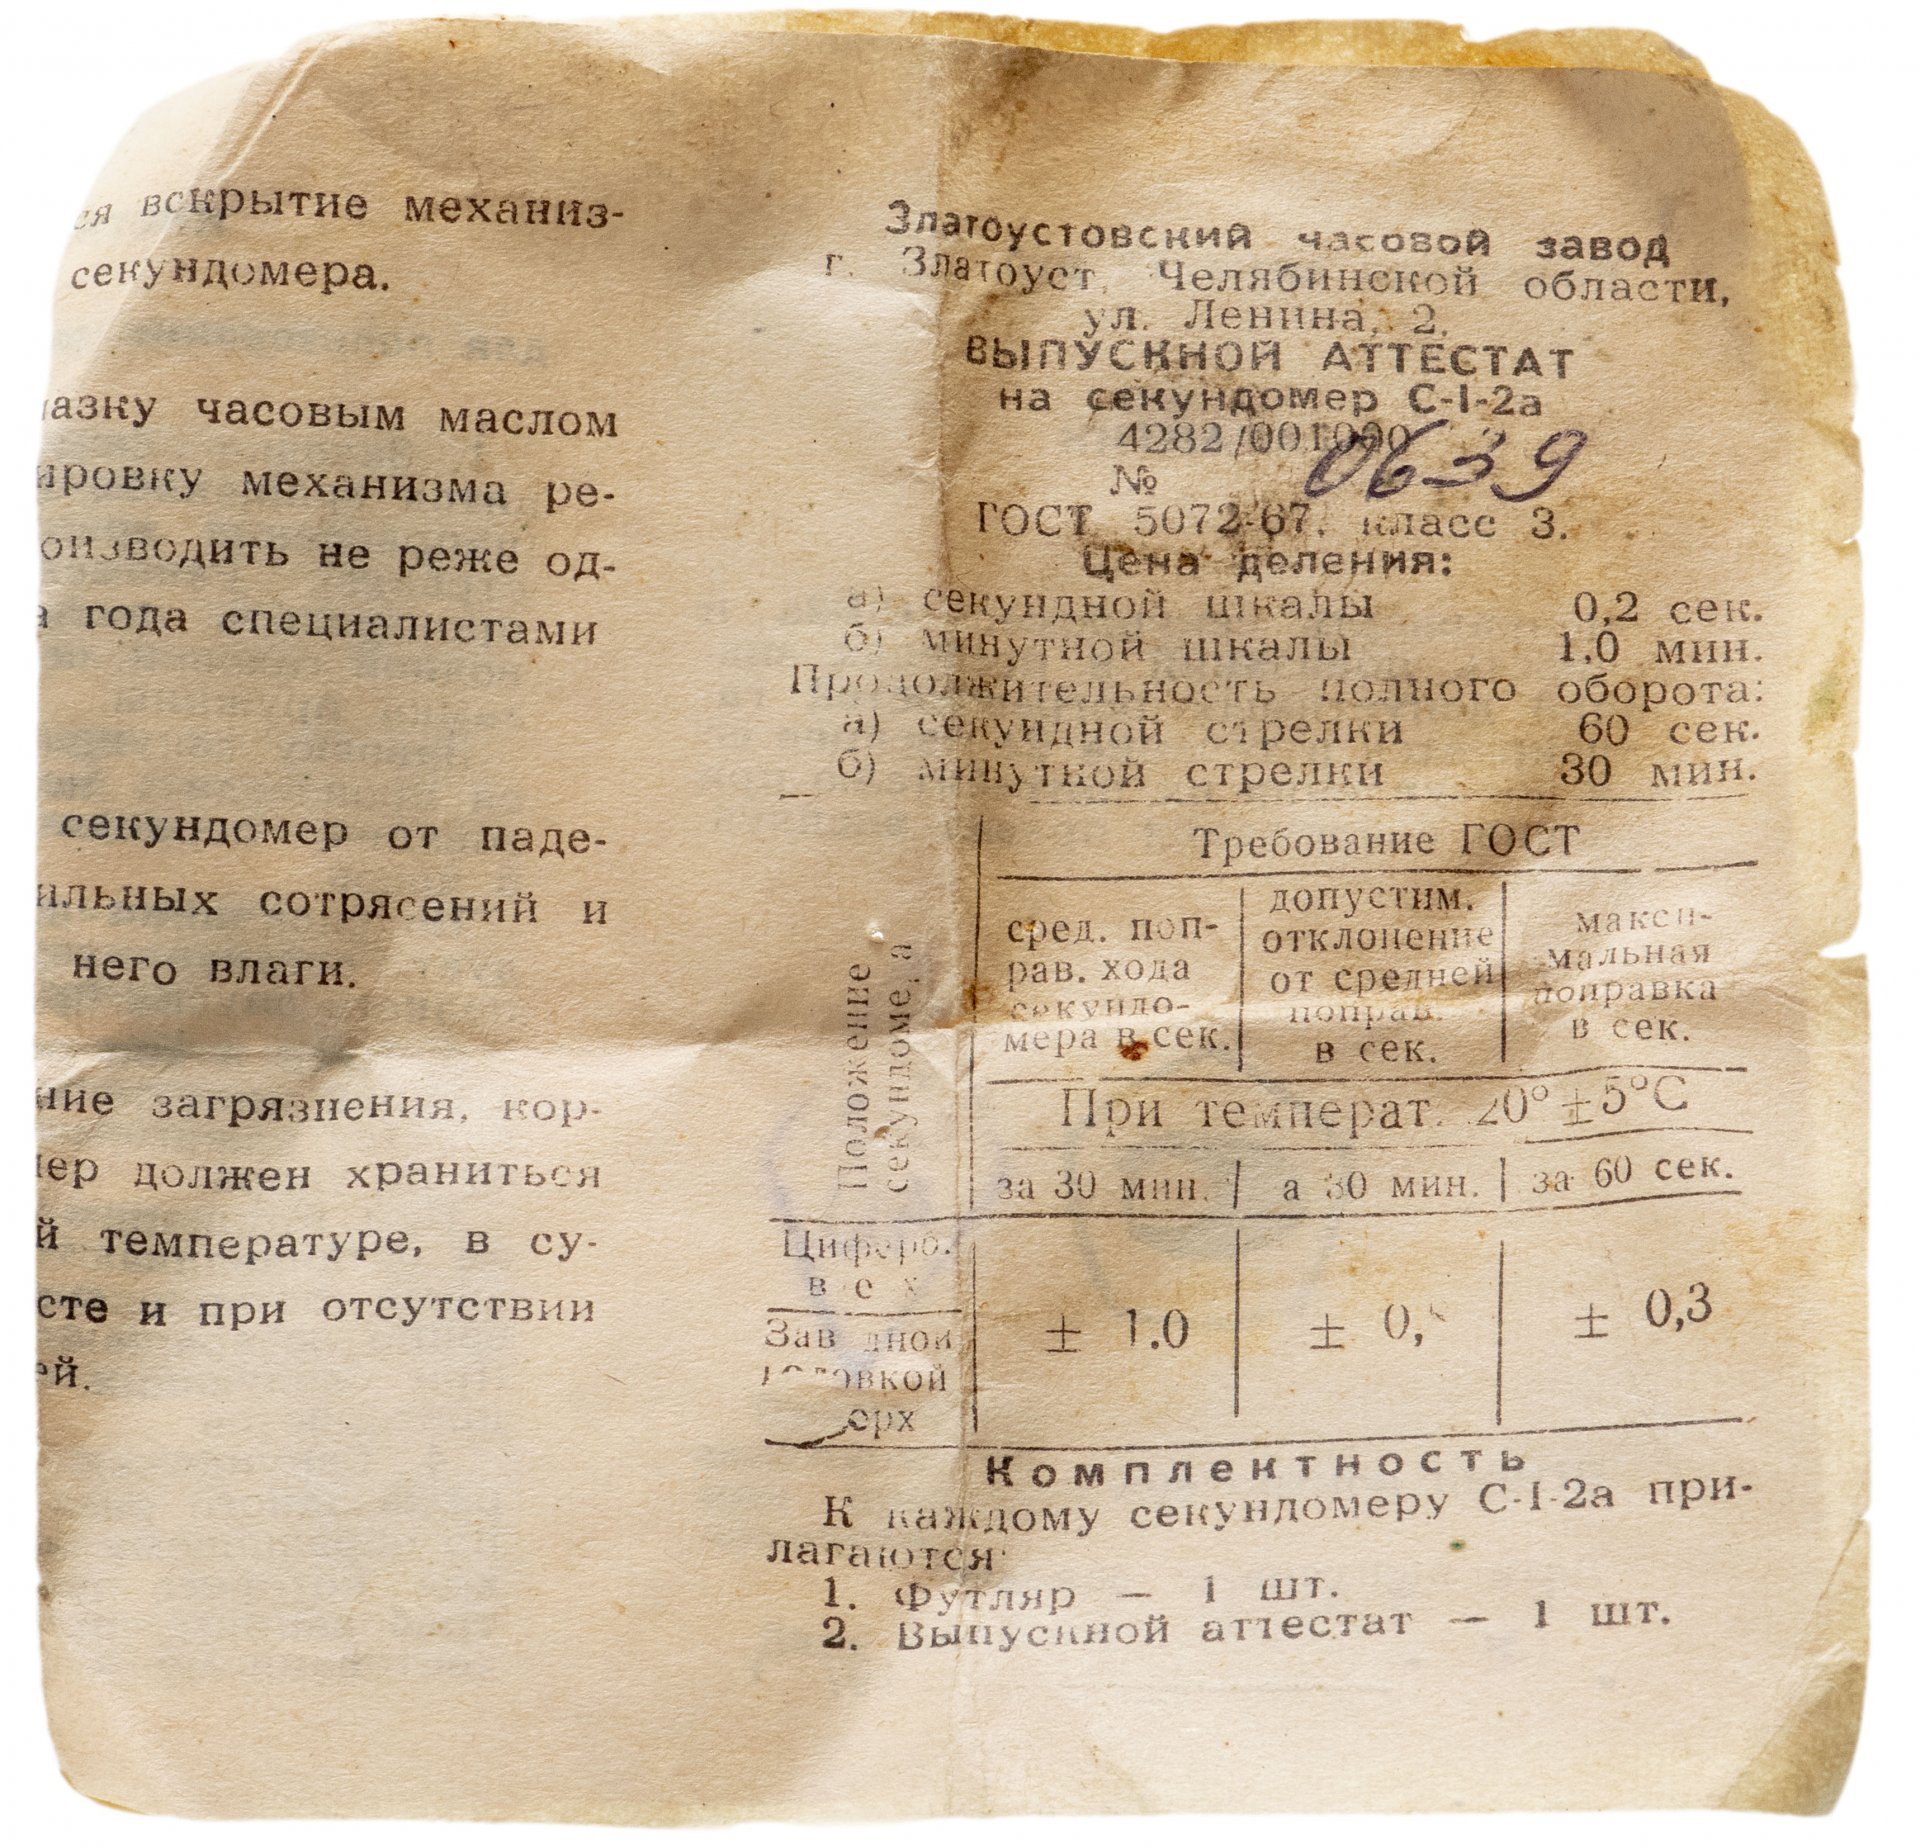 вскрытие механиз-
секундомера.
часовым маслом
механизма ре-
не реже од-
года специалистами
секундомер от паде-
сотрясений и
него влаги.
загрязнения, кор-
должен храниться
температуре, в су-
и при отсутствии
Златоустовский часовой завод
г. Златоуст, Челябинской области,
ул. Ленина, 2.
ВЫПУСКНОЙ АТТЕСТАТ
на секундомер С-1-2а
4282/001000
№ 0639
ГОСТ 5072-67. класс 3.
Цена деления:
а) секундной шкалы 0,2 сек.
б) минутной шкалы 1,0 мин.
Продолжительность полного оборота:
а) секундной стрелки 60 сек.
б) минутной стрелки 30 мин.
Положение
Требование ГОСТ
сред. поп-
рав. хода
секундо-
мера в сек.
допустим.
отклонение
от средней
поправ.
в сек.
макси-
мальная
поправка
в сек.
При температ. 20° ± 5°С
за 30 мин.
30 мин.
за 60 сек.
Циферб.
± 1.0
± 0,3
Комплектность
К каждому секундомеру С-1-2а при-
лагаются
1. Футляр — 1 шт.
2. Выпускной аттестат — 1 шт.